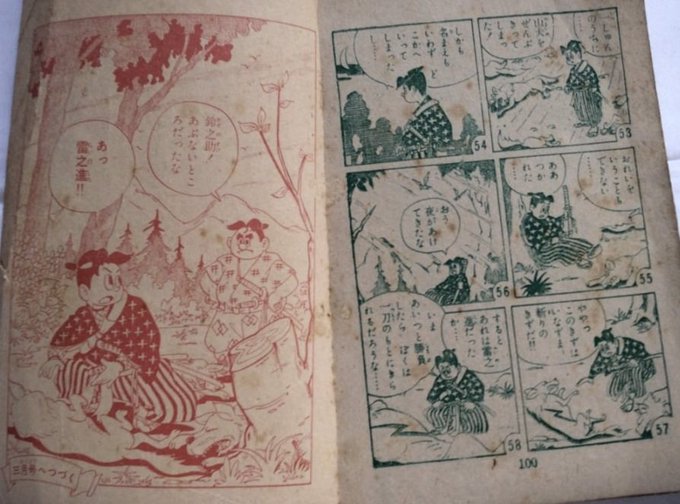 のうちに……
山犬を
ぜんぶ
きって
しまった!
53
しかも
名まえも
いわず ど
こかへ
いって
しまった
……
54
おれいを
いうことも
できない
……
ああ
つか
れた
55
おう
夜があけ
てきたな
56
ややっ
このきずは
いなずま
斬りの
きずだ!!
57
すると
あれは雷之
進だった
か……
いま
あいつと勝負
したら ぼくは
一刀のもとにきら
れるだろうな……
58
100
鈴之助!
あぶないとこ
ろだったな
あっ
雷之進!!
三月号へつづく